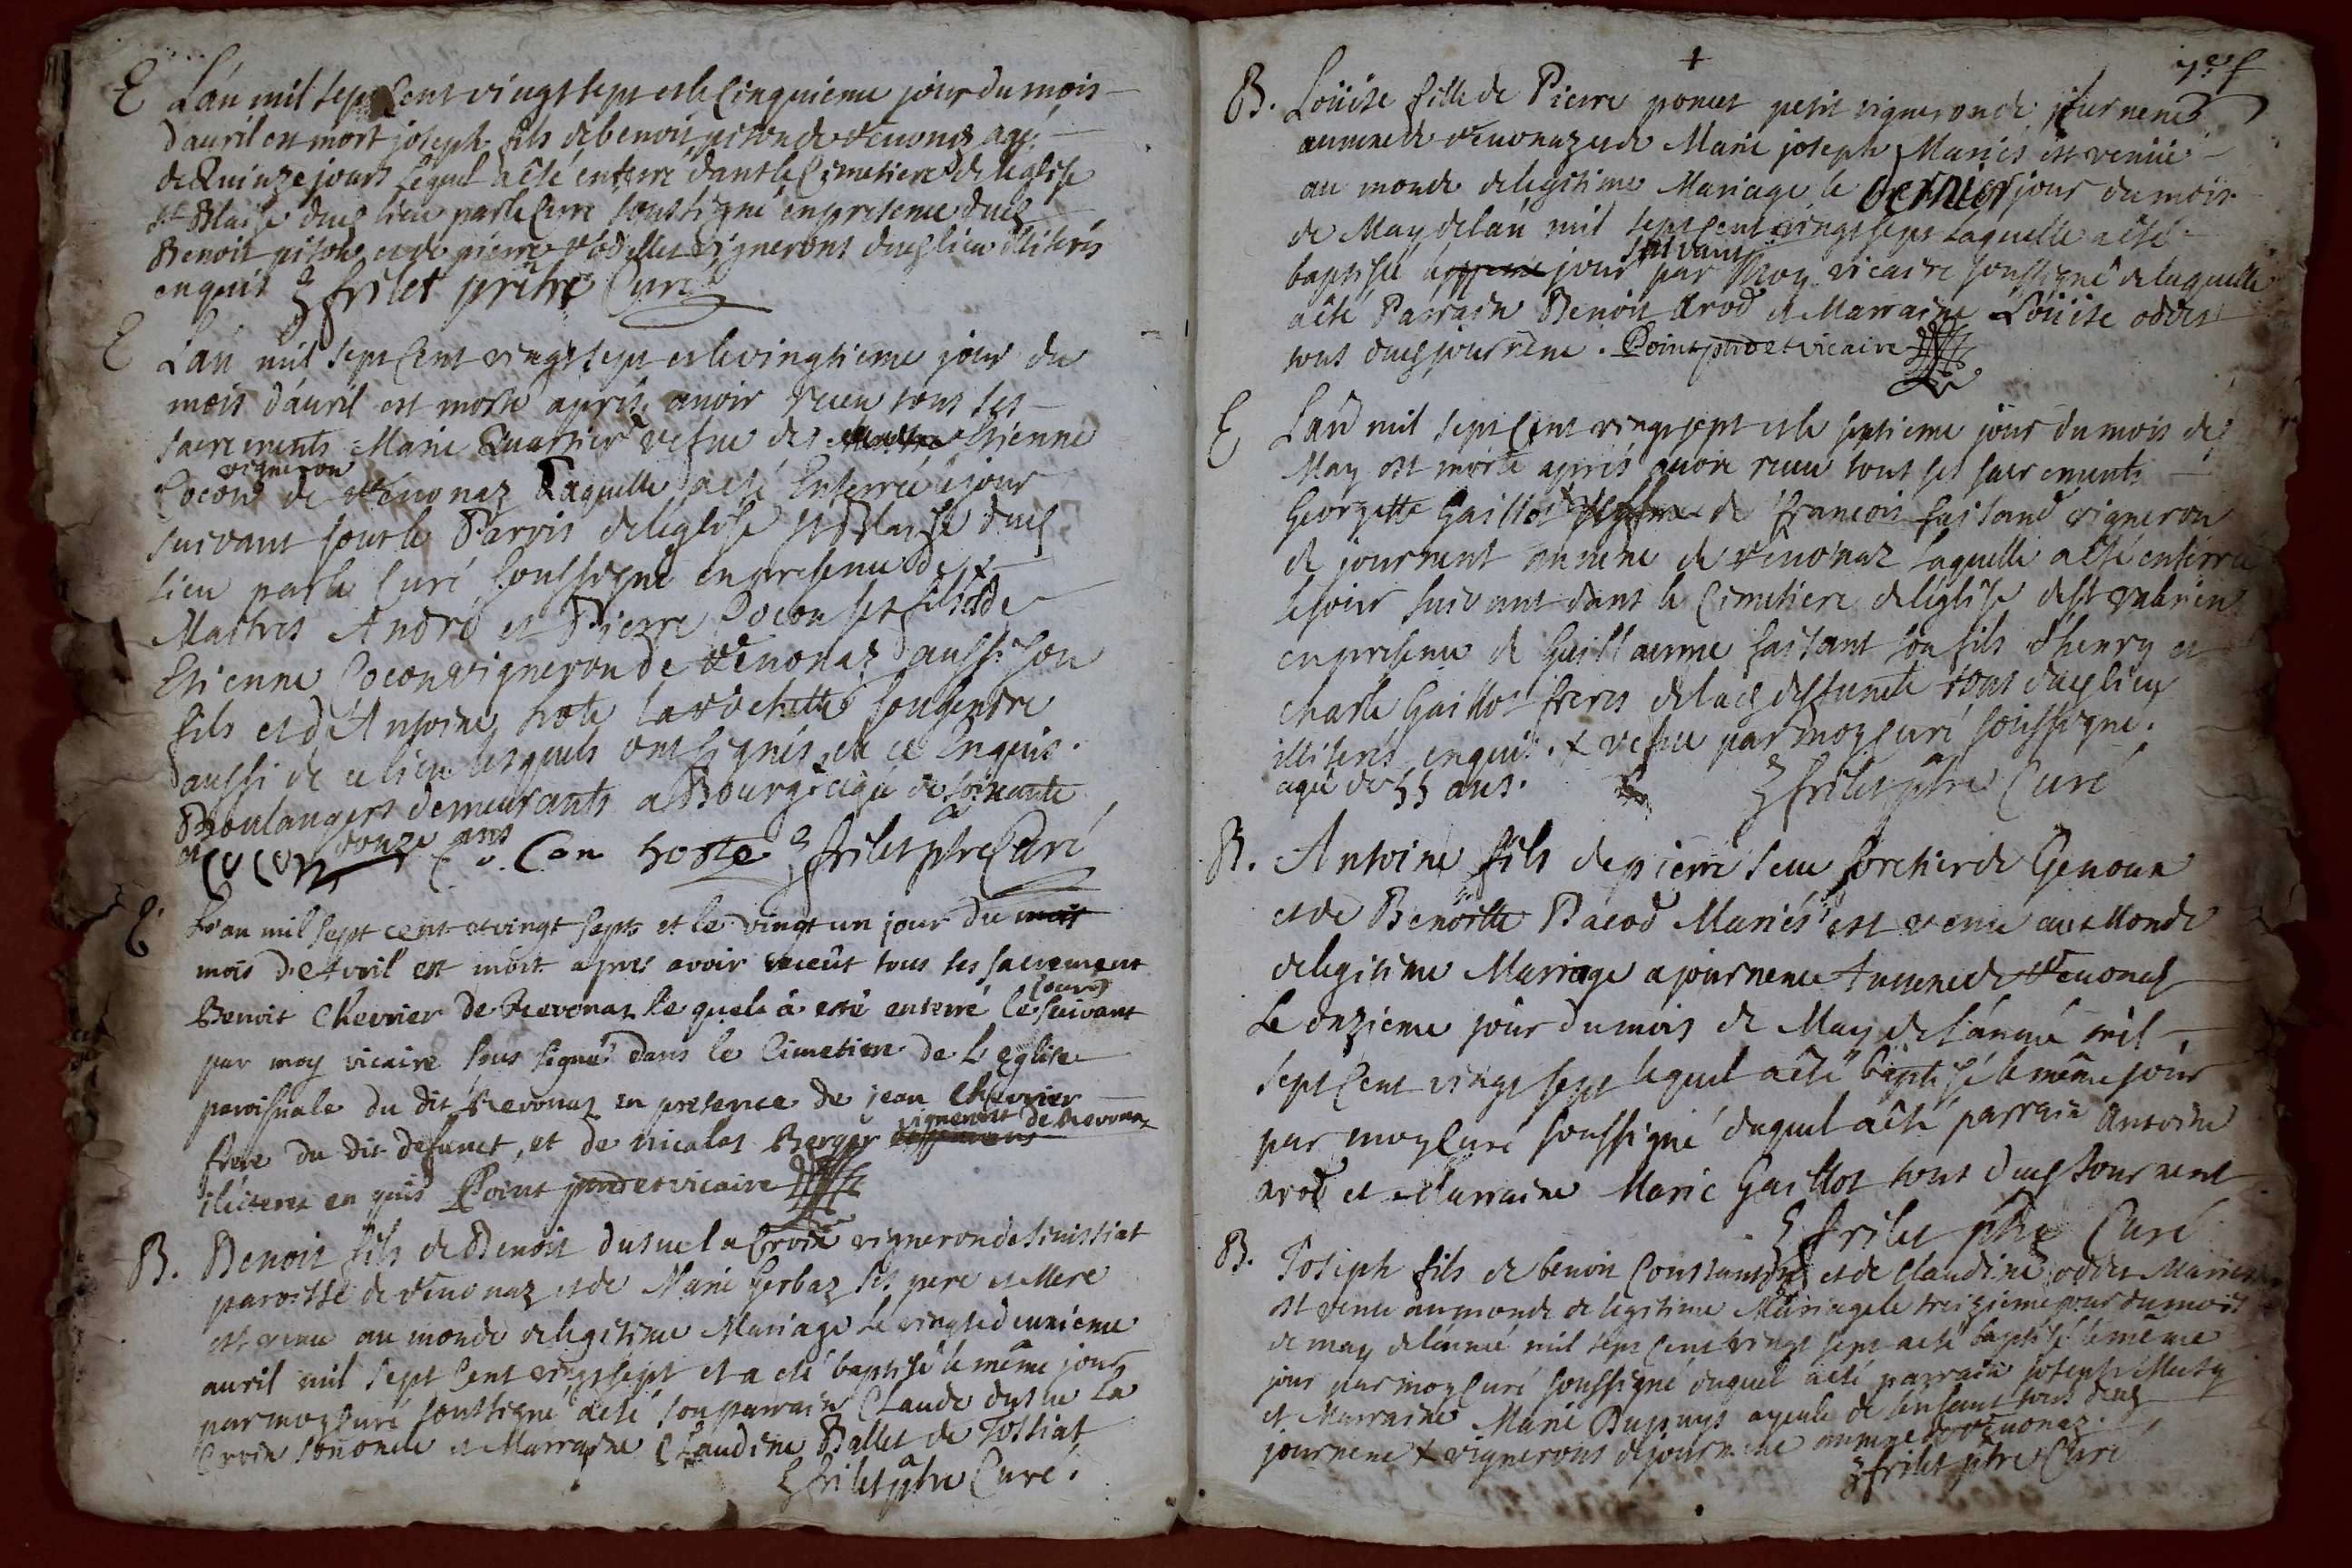 E L'an mil sept Cent vingt sept et le Cinquieme jour du mois
d'avril est mort joseph fils de benoit pison de revonaz agé
de Quinze jours lequel a êté enterré dans le Cimetiere de leglise
st Blaise dud lieu par le Curé soussigné en presence dud
Benoit pison et de pierre vignerons dud lieu illiterés
enquis frilet prêtre Curé
E L'an mil sept Cent vingt sept et le vingtieme jour du
mois d'avril est morte aprés avoir receu tous ses
sacrements Marie Quartier vefue de Etienne
vigneron
Cocon de revonaz Laquelle a eté Enterrée le jour
suivant sous le Parvis de leglise st Blaise dud
lieu par le Curé soussigné en presence de x
Maitres André et Pierre Cocon ses fils & de
Etienne Cocon vigneron de revonaz aussi son
fils et d'Antoine hote larochette son gendre
aussi de ce lieu lesquels ont signés de ce Enquis.
Boulangers demeurants a Bourg agée de soixante
et douze ans
cocon C. Con hoste frilet ptre Curé
E L'an mil sept cent et vingt sept et le vingt un jour du mois
mois d'Avril est mort apres avoir receut tous ses sacrement
jour
Benoit Chevrier de Revonas le quel à esté enterré le suivant
par moy vicaire sous signé dans le Cimetiere de L'eglise
paroissiale du dit Revonas en presence de jean Chevrier
vignerons de Revonaz
frere du dit defunct, et de nicolas Berger
illiteres en quis Point ptre et vicaire
B. Benoit fils de Benoit dusuel a Croix vigneron de Senissiat
paroisse de revonaz et de Marie Gerbaz ses pere et Mere
est venu au monde de legitime Mariage le vingt deuxieme
avril mil sept Cent vingt sept et a eté baptisé le même jour
par moy Curé soussigné a eté son parrain Claude dusue la
Croix son oncle et Marraine Claudine Ballet de Tossiat
frilet ptre Curé.
+
B. Loüise fille de Pierre poncet petit vigneron de journens
annexe de revonaz et de Marie joseph Mariés est venüe
au monde de legitime Mariage le dernier jour du mois
de May de l'an mil sept Cent vingt sept Laquelle a êté
suivant
baptisée le jour par Moy vicaire soussigné de laquelle
a êté Parrain Benoit Arod et Marraine Loüise oddet
tous dud journene. Point ptre et vicaire
E L'an mil sept Cent vingt sept et le septieme jour du mois de
May est morte aprés avoir receu tous ses sacrements
Georgette Gaillot de francois faisand vigneron
de journens annexe de revonaz Laquelle a êté enterrée
le jour suivant dans le Cimetiere de leglise de st valerien
en presence de Guillaume faisant son fils & henry et
charle Gaillot freres de lad deffuncte tous dud lieu
illiterés enquis. x vefue par moy Curé soussigné.
agée de 55 ans. frilet ptre Curé
B. Antoine fils de pierre seue forestier de Genoux
et de Benoitte Bacod Mariés est venu au Monde
de legitime Mariage a journene Annexe de revonas
Le onzieme jour du mois de May de l'année mil
sept Cent vingt sept lequel a êté baptisé le même jour
par moy Curé soussigné duquel a êté parrain Antoine
arod et Marraine Marie Gaillot tous dud Journent
frilet ptre Curé
B. Joseph fils de benoit Constantin et de Claudine oddet Mariés
est venu au monde de legitime Mariage le treizieme jour du mois
de may de l'année mil sept Cent vingt sept a eté baptisé le même
jour par moy Curé soussigné duquel a êté parrain joseph Musy
et Marraine Marie Dupuys ayeule de l'enfant tous dud
journene x vignerons de journene annexe de revonaz.
frilet ptre Curé